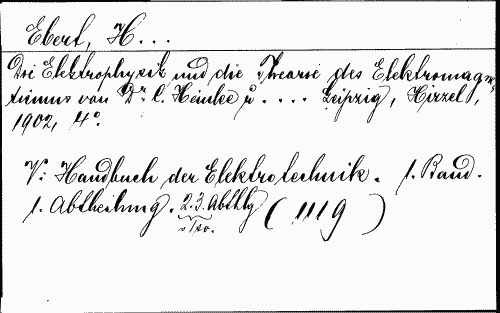 Ebert, H...
Die Elektrophysik und die Theorie des Elektromagne-
tismus von Dr. C. Heinke u. .... Leipzig, Hirzel,
1902, 4°.
V: Handbuch der Elektrotechnik. 1. Band.
1. Abtheilung. 2.3. Abthlg (1119)